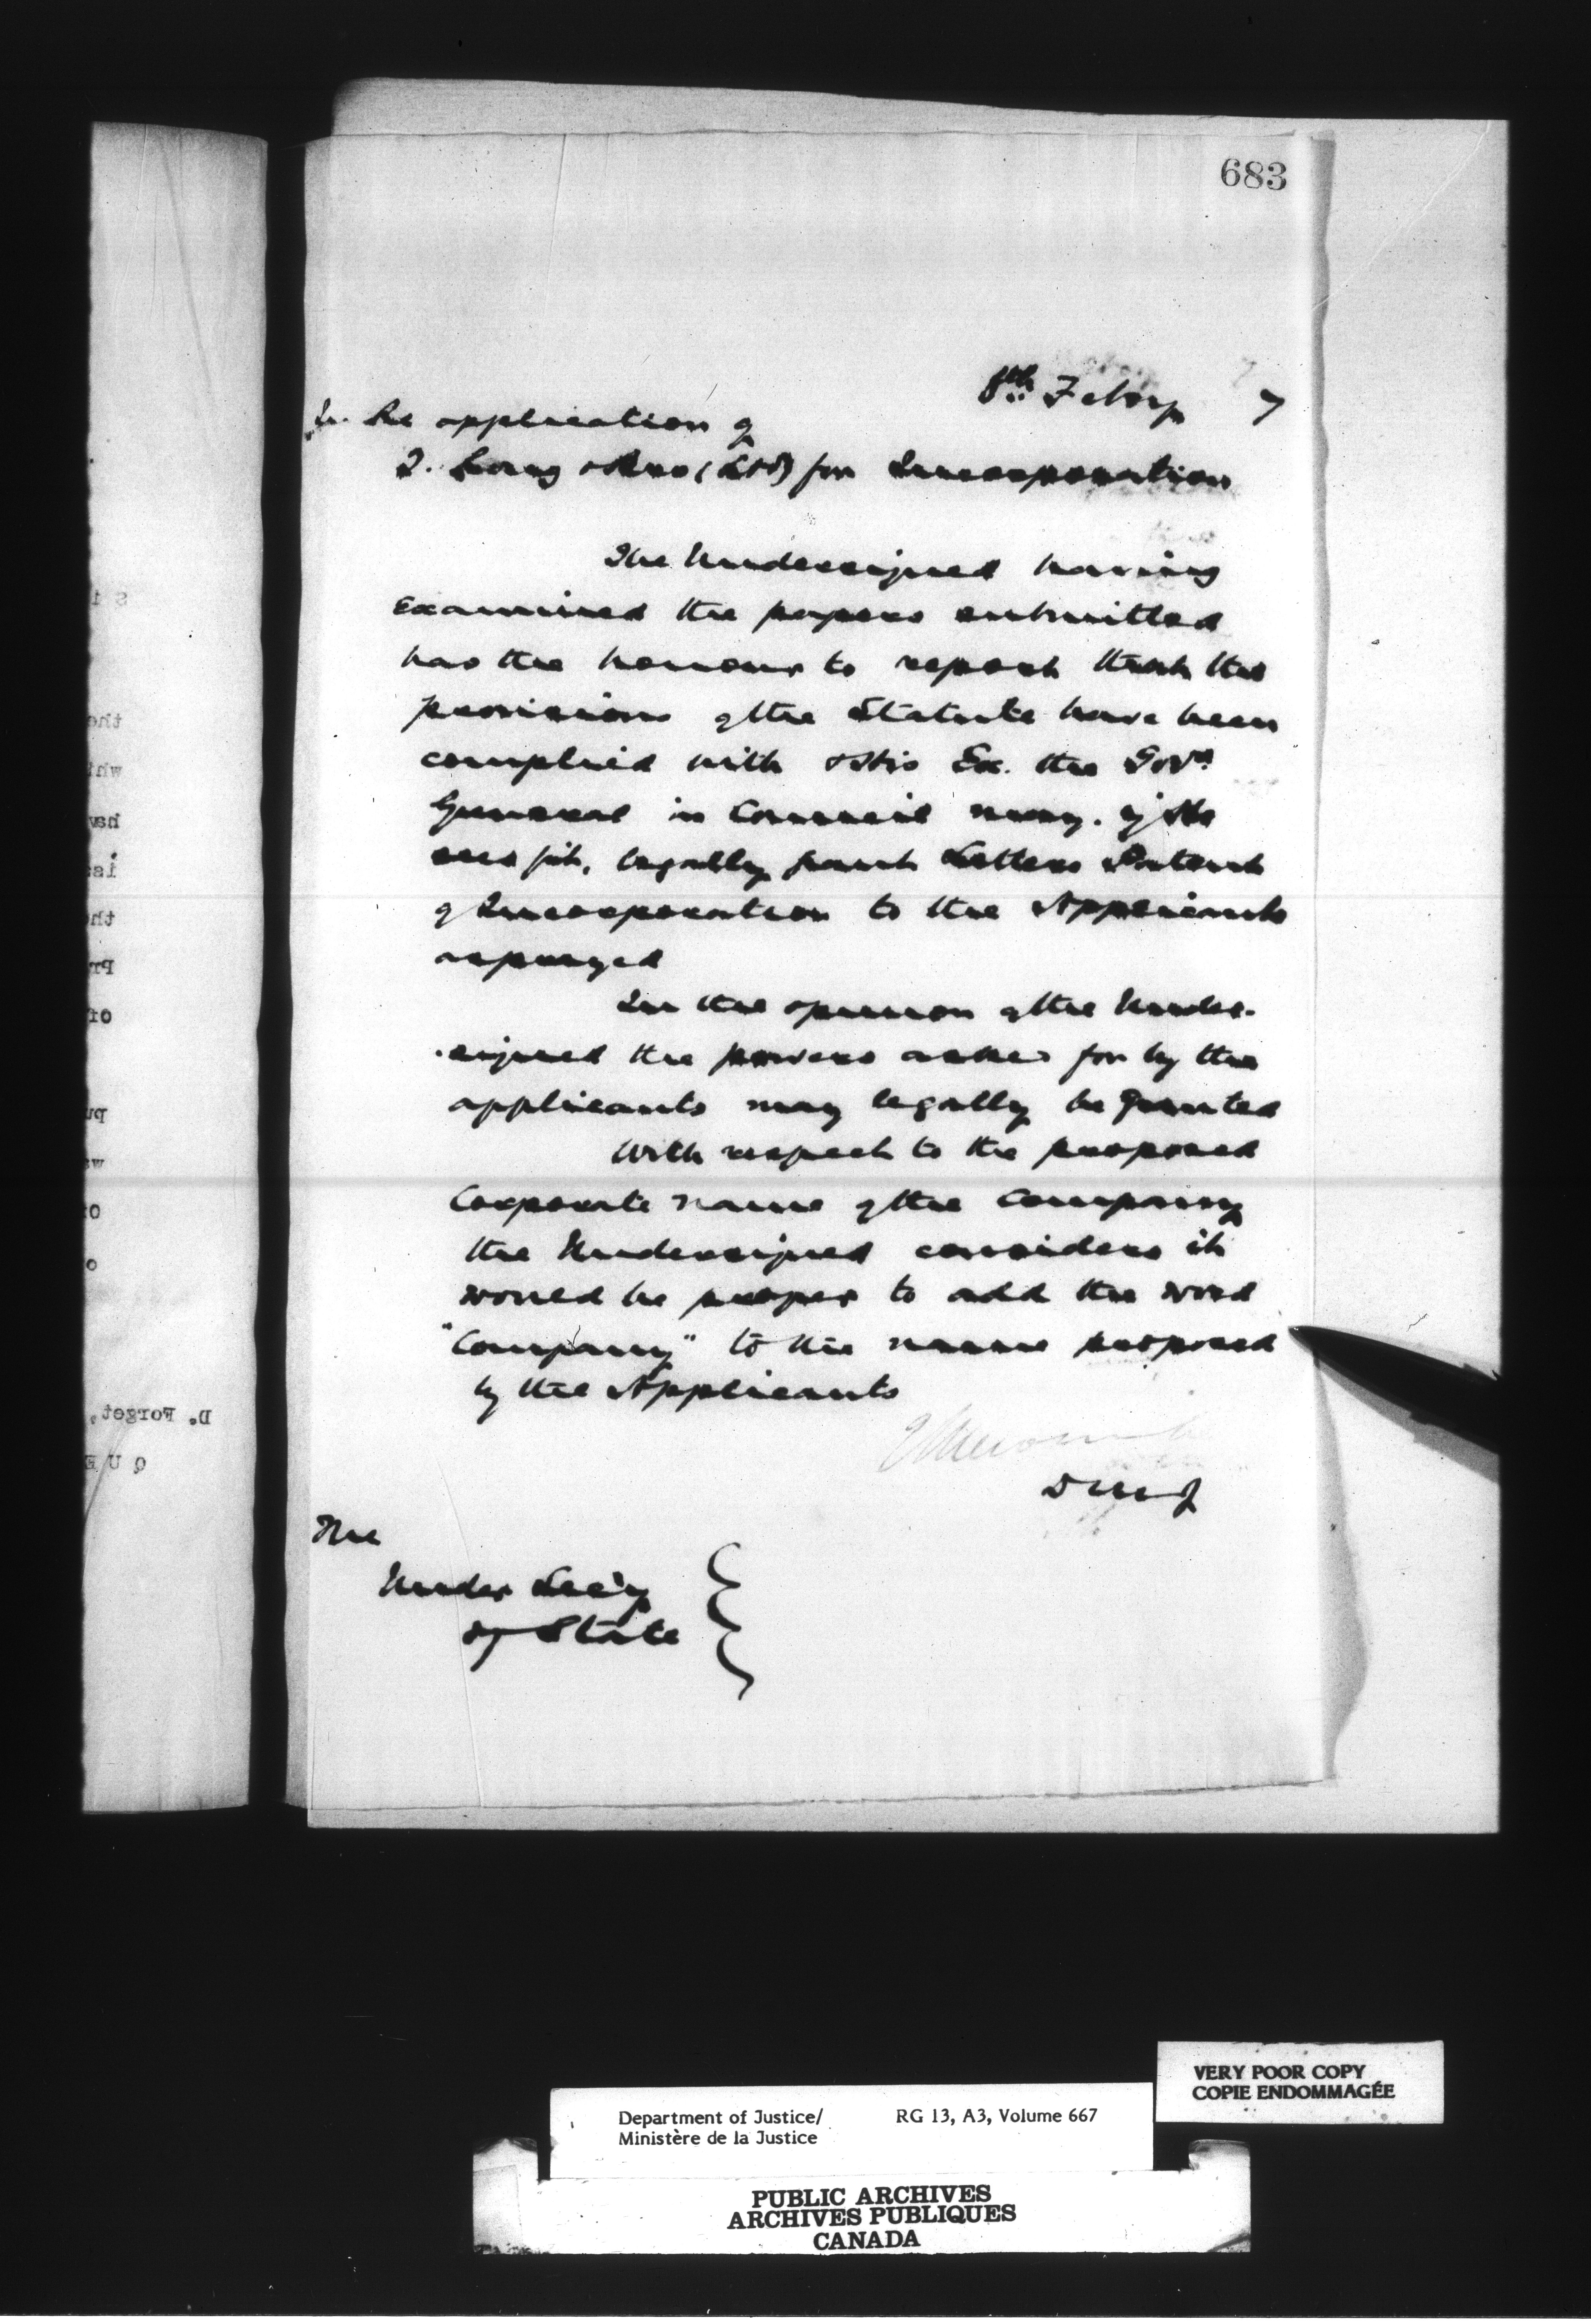 683
8th Febry 7
In Re application of
T. Long & Bro (Ltd) for Incorporation
The Undersigned having
Examined the papers submitted
has the honour to report that the
provisions of the Statute have been
complied with & His Ex. the Govr
General in Council may. if He
sees fit, legally grant Letters Patent
of Incorporation to the Applicants
as prayed
In the opinion of the Under-
-signed the powers asked for by the
applicants may legally be granted
With respect to the proposed
Corporate name of the Company
the Undersigned considers it
would be proper to add the word
"Company" to the name proposed
by the Applicants
E L Newcombe
D M J
The
Under Sec'y
of State
D. Forget,
VERY POOR COPY
COPIE ENDOMMAGÉE
Department of Justice/ RG 13, A3, Volume 667
Ministère de la Justice
PUBLIC ARCHIVES
ARCHIVES PUBLIQUES
CANADA